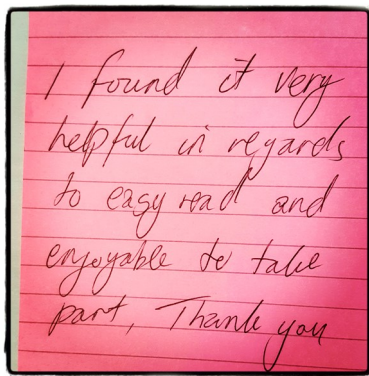 I found it very
helpful in regards
to easy read and
enjoyable to take
part, Thank you